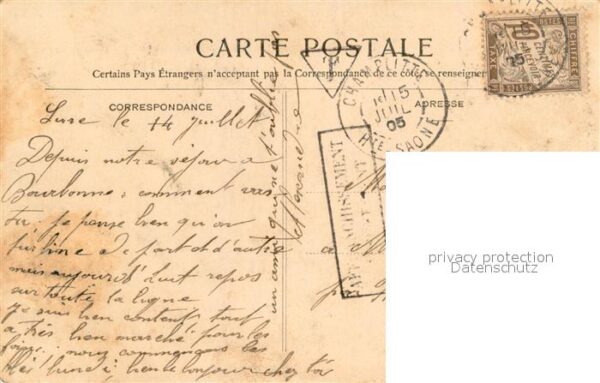 CARTE POSTALE
Certains Pays Étrangers n'acceptant pas la Correspondance de ce côté, se renseigner
CORRESPONDANCE
ADRESSE
T
CHAMPLITTE
15
JUIL
05
HTE SAONE
10
CENTIMES
À PERCEVOIR
CHIFFRE
TAXE
POSTES
05
AFFRANCHISSEMENT
Lure le 14 juillet
Depuis notre séjour a
Bourbonne; comment vas
tu; je pense bien qu'on
de part et d'autre
mais aujourd'hui repos
sur toute la ligne
je suis bien content tout
a très bien marché pour les
foins; nous commençons les
blés lundi; bien le bonjour chez toi
un ami qui ne t'oublie pas
privacy protection
Datenschutz